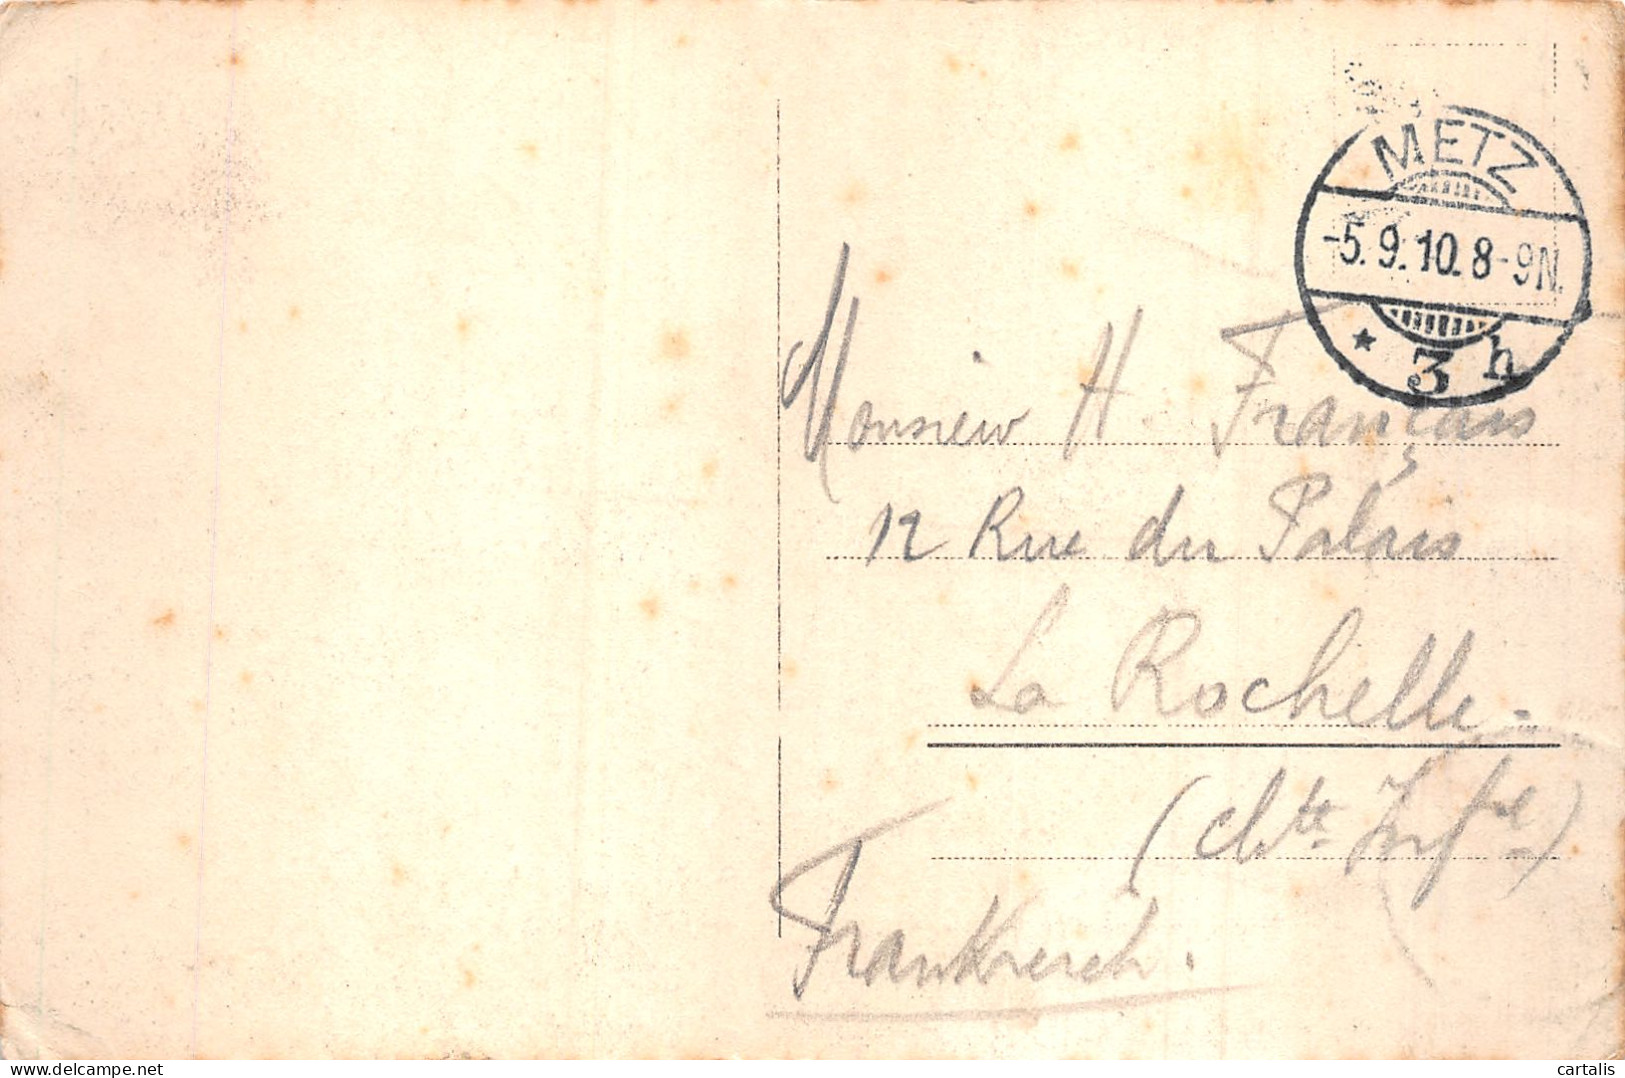 METZ
-5.9.10.8-9N.
* 3 h
Monsieur H. Français
12 Rue du Palais
La Rochelle.
(Chte Infre)
Frankreich.
delcampe.net
cartalis